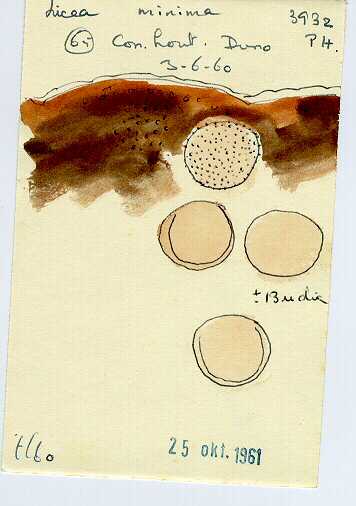 Licea minima 3932
65 Con. hout. Duno P4.
3-6-60
± 13 μ dia
25 okt. 1961